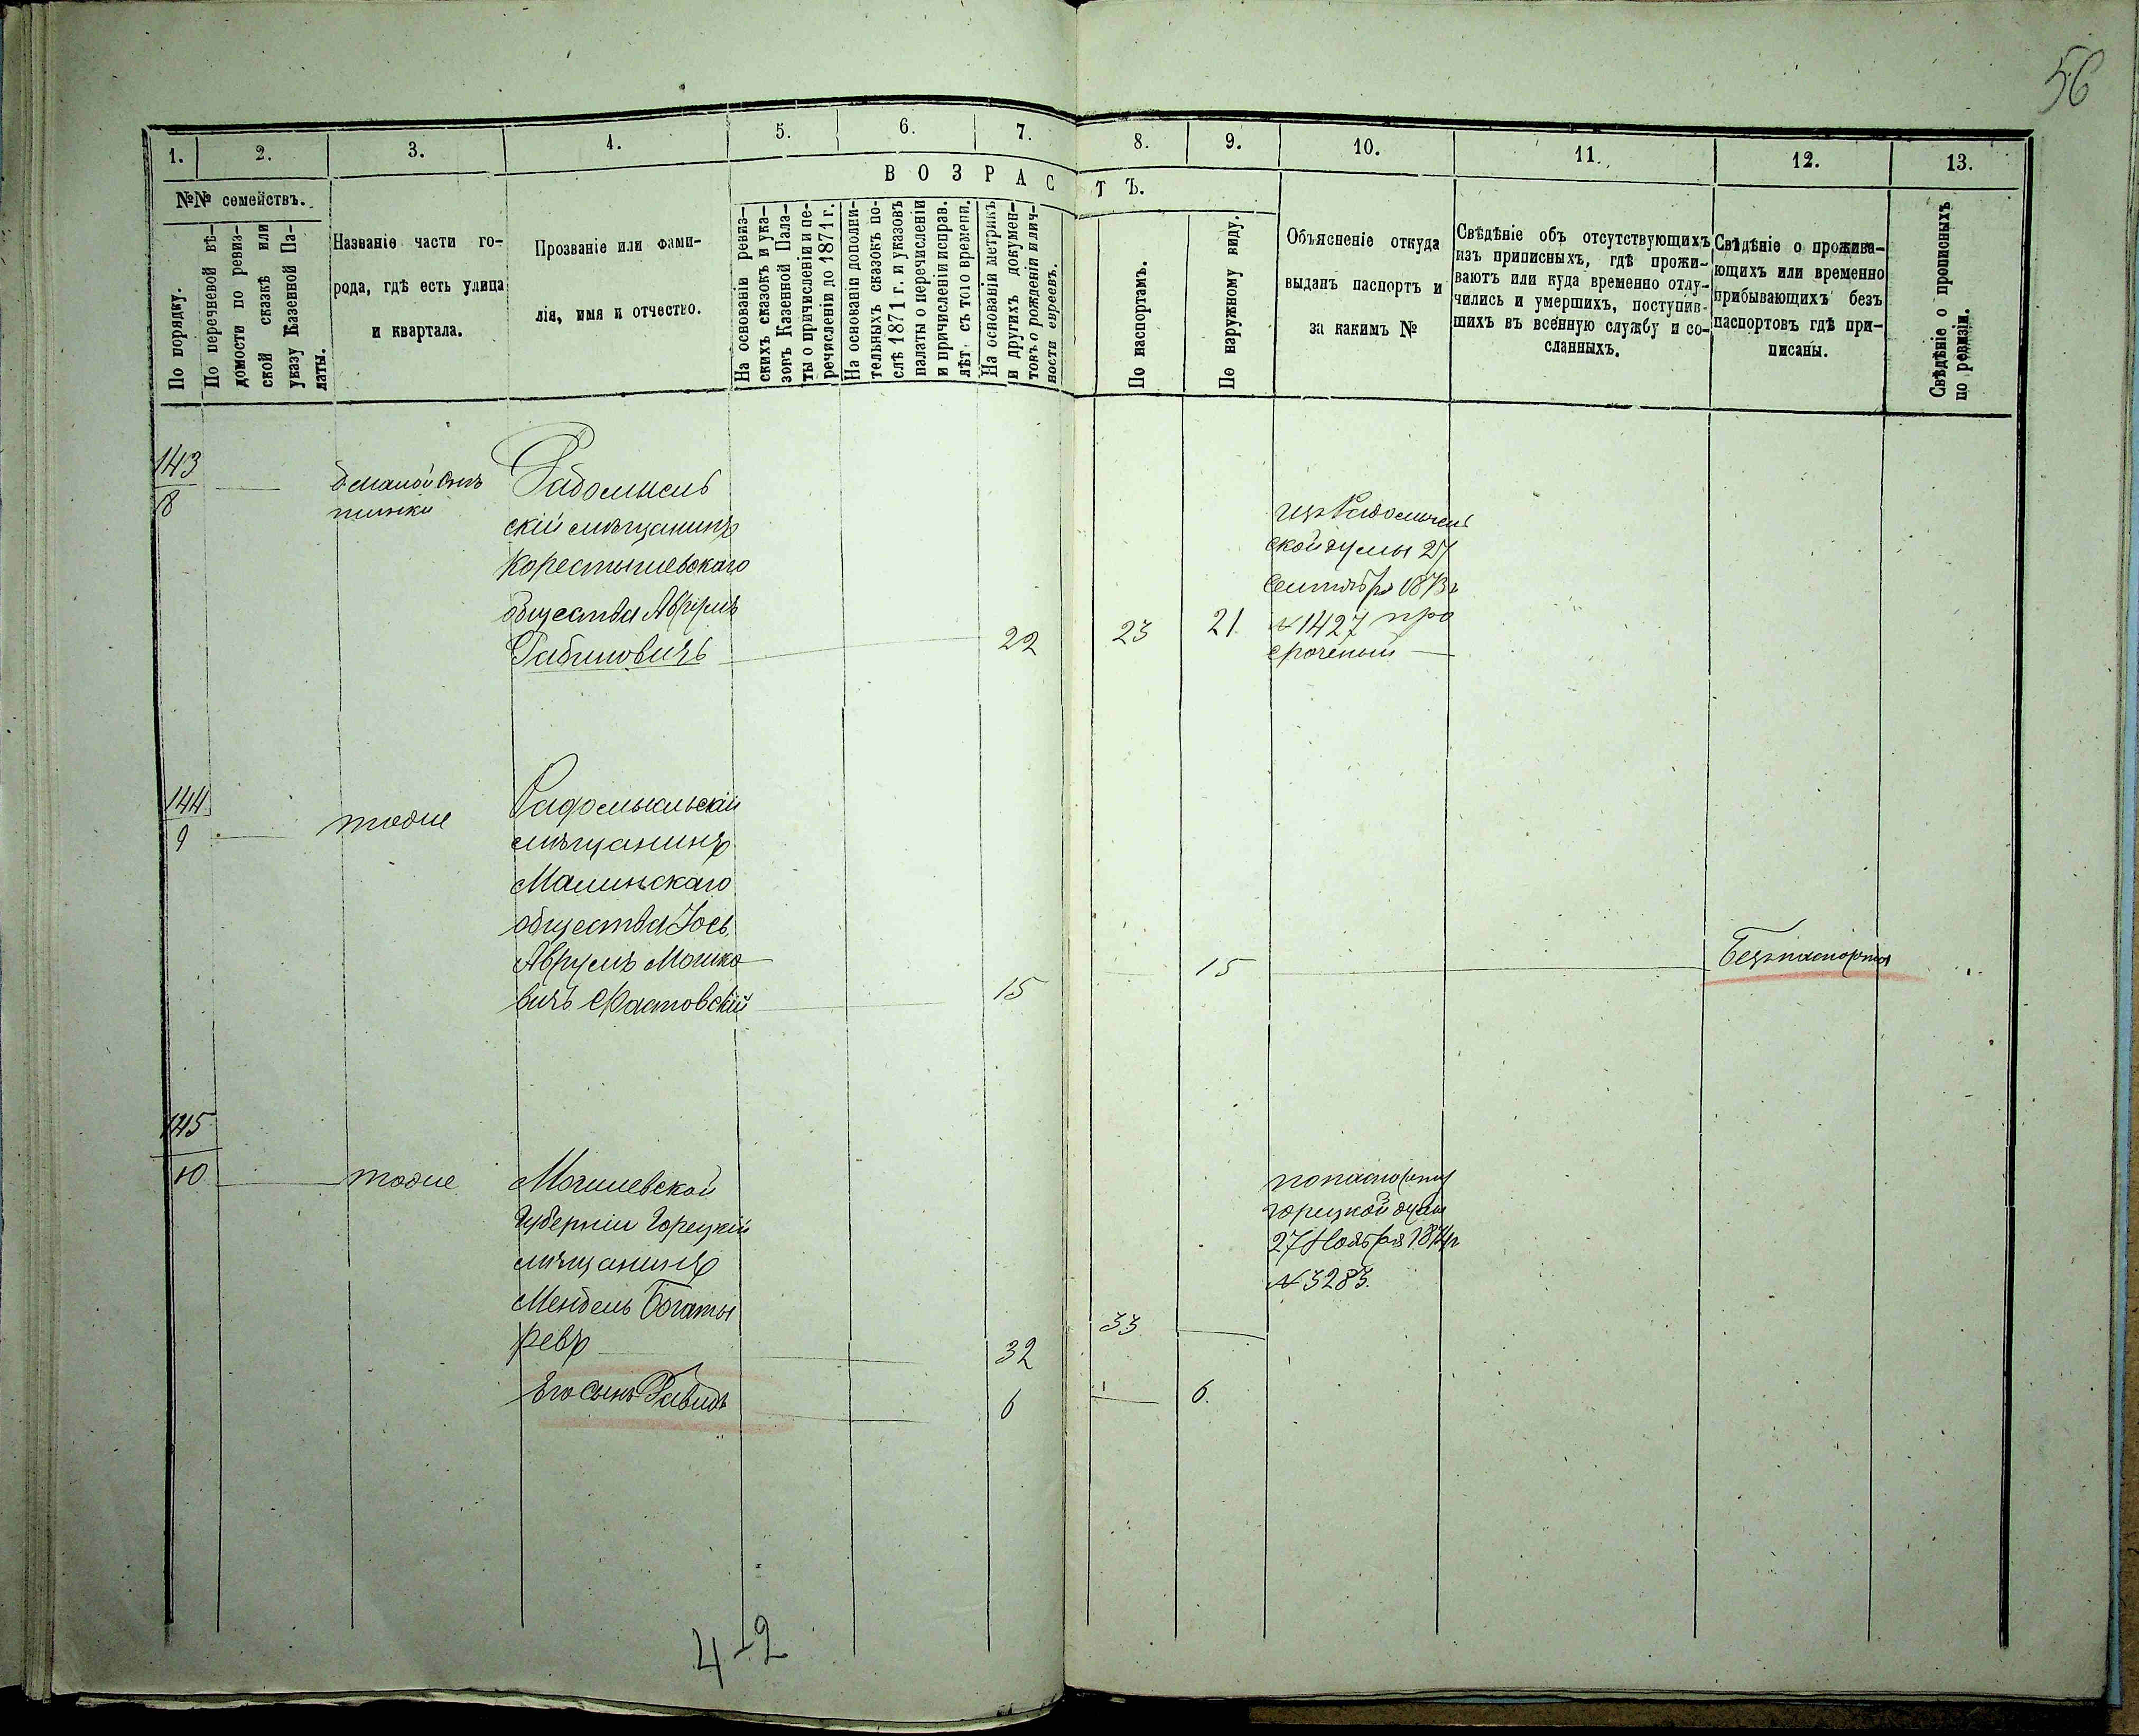 56
1. 2. 3. 4. 5. 6. 7. 8. 9. 10. 11. 12. 13.
В О З Р А С Т Ъ.
№№ семействъ.
По порядку.
По перечневой вѣ-
домости по ревиз-
ской сказкѣ или
указу Казенной Па-
латы.
Названіе части го-
рода, гдѣ есть улица
и квартала.
Прозваніе или фами-
лія, имя и отчество.
На основаніи ревиз-
скихъ сказокъ и ука-
зовъ Казенной Пала-
ты о причисленіи и пе-
речисленіи до 1871 г.
На основаніи дополни-
тельныхъ сказокъ по-
слѣ 1871 г. и указовъ
палаты о перечисленіи
и причисленіи исправ.
лѣт. съ того времени.
На основаніи метрикъ
и другихъ докумен-
товъ о рожденіи и лич-
ности евреевъ.
По паспортамъ.
По наружному виду.
Объясненіе откуда
выданъ паспортъ и
за какимъ №
Свѣдѣніе объ отсутствующихъ
изъ приписныхъ, гдѣ прожи-
ваютъ или куда временно отлу-
чились и умершихъ, поступив-
шихъ въ военную службу и со-
сланныхъ.
Свѣдѣніе о прожива-
ющихъ или временно
прибывающихъ безъ
паспортовъ гдѣ при-
писаны.
Свѣдѣніе о прописныхъ
по ревизіи.
143
8
Радомысль
скій мѣщанинъ
Коростышевскаго
общества Аврумъ
Рабиновичъ 22 23 21
изъ Радомысль
ской думы 27
Сентября 1873 г
№ 1427 про
сроченый
144
9
тоже
Радомысльскій
мѣщанинъ
Малинскаго
общества Іось
Аврумъ Мошко
вичъ Фастовскій 15 15
Безъ паспорта
145
10
тоже
Могилевской
Губерніи Горецкій
мѣщанинъ
Мендель Богаты
ревъ 32 33
Его сынъ Давидъ 6 6.
по паспорту
Горецкой думы
27 Ноября 1874 г
№ 3283.
4-2